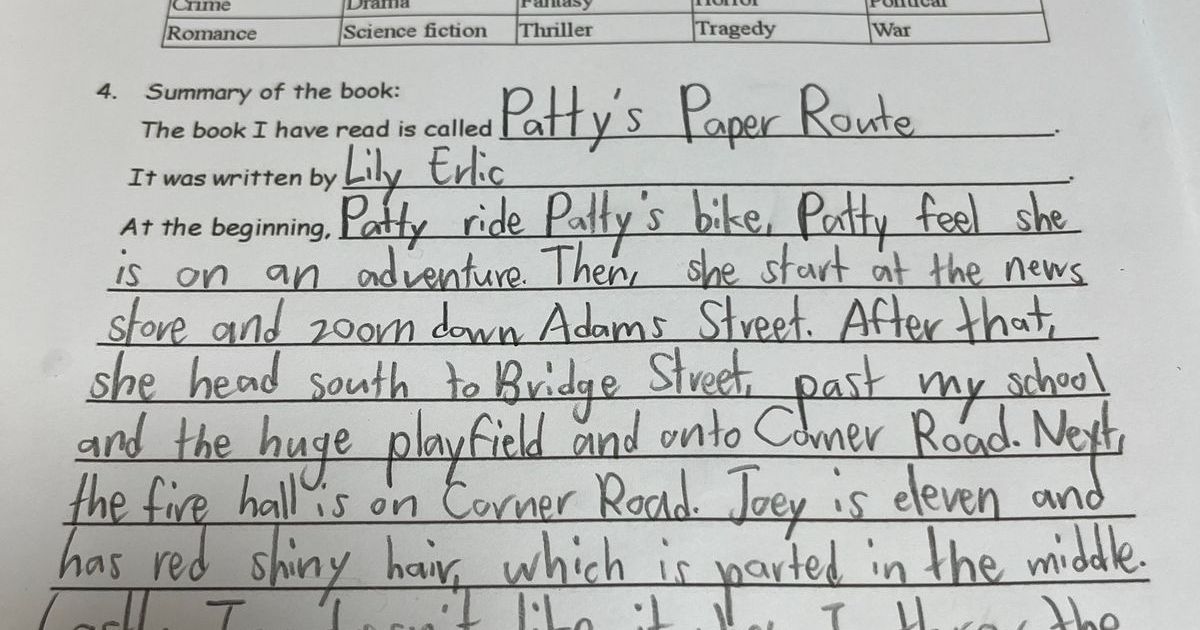 Crime Drama Fantasy Horror Political
Romance Science fiction Thriller Tragedy War
4. Summary of the book:
The book I have read is called Patty's Paper Route.
It was written by Lily Erlic.
At the beginning, Patty ride Patty's bike, Patty feel she
is on an adventure. Then, she start at the news
store and zoom down Adams Street. After that,
she head south to Bridge Street, past my school
and the huge playfield and onto Corner Road. Next,
the fire hall is on Corner Road. Joey is eleven and
has red shiny hair, which is parted in the middle.